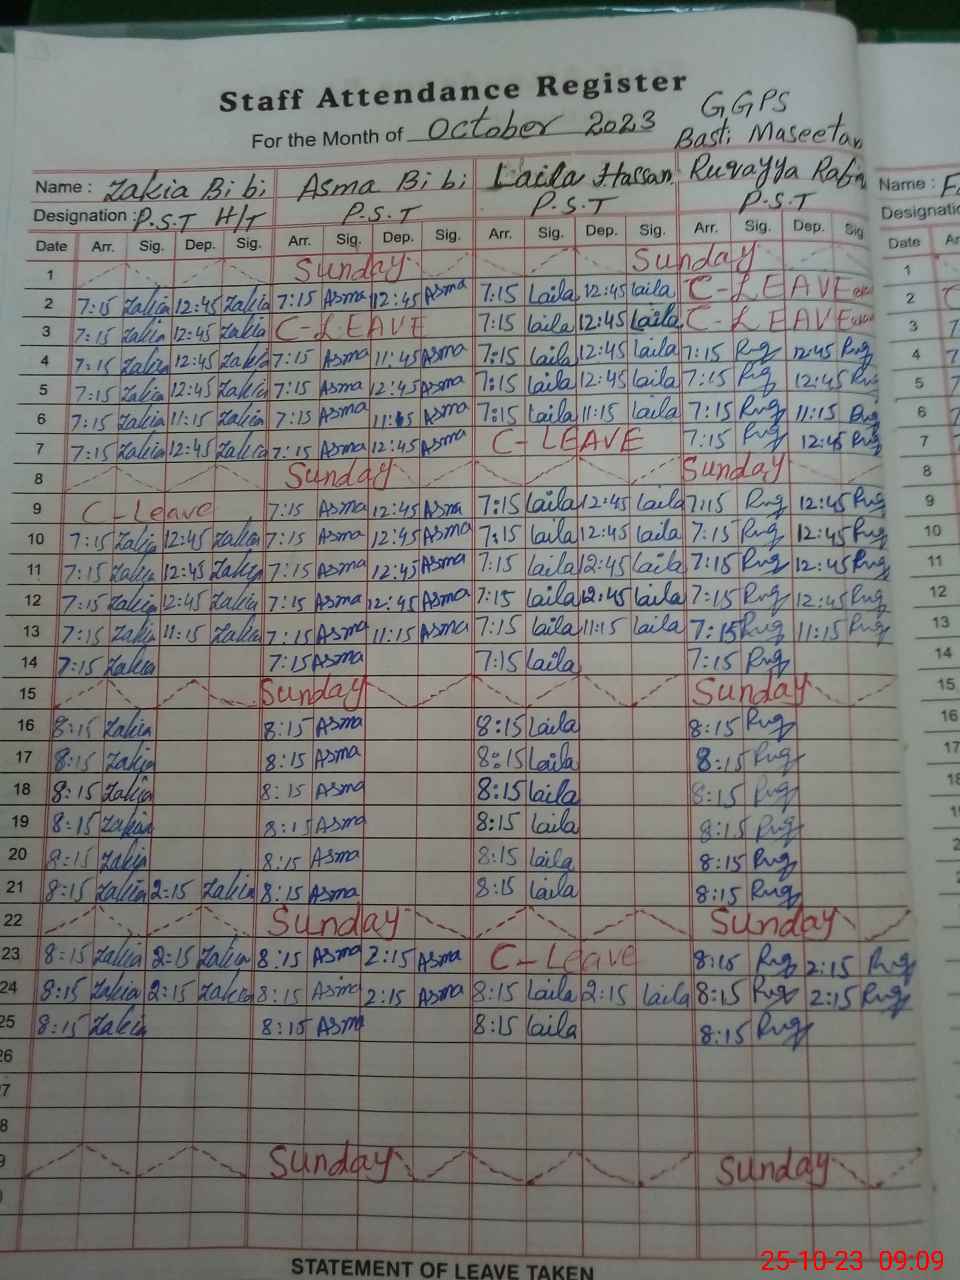 Staff Attendance Register
GGPS
For the Month of October 2023
Basti Maseetan
Name : Zakia Bibi Asma Bibi Laila Hassan Ruqayya Rab Name : F
Designation : P.S.T H/T P.S.T P.S.T P.S.T Designatio
Date Arr. Sig. Dep. Sig. Arr. Sig. Dep. Sig. Arr. Sig. Dep. Sig. Arr. Sig. Dep. Sig Date Ar
1 Sunday Sunday 1
2 7:15 Zakia 12:45 Zakia 7:15 Asma 12:45 Asma 7:15 Laila 12:45 Laila C-LEAVE 2
3 7:15 Zakia 12:45 Zakia C-LEAVE 7:15 Laila 12:45 Laila C-LEAVE 3
4 7:15 Zakia 12:45 Zakia 7:15 Asma 11:45 Asma 7:15 Laila 12:45 Laila 7:15 Ruq 12:45 Ruq 4
5 7:15 Zakia 12:45 Zakia 7:15 Asma 12:45 Asma 7:15 Laila 12:45 Laila 7:15 Ruq 12:45 Ruq 5
6 7:15 Zakia 11:15 Zakia 7:15 Asma 11:15 Asma 7:15 Laila 11:15 Laila 7:15 Ruq 11:15 Ruq 6
7 7:15 Zakia 12:45 Zakia 7:15 Asma 12:45 Asma C-LEAVE 7:15 Ruq 12:45 Ruq 7
8 Sunday Sunday 8
9 C-Leave 7:15 Asma 12:45 Asma 7:15 Laila 12:45 Laila 7:15 Ruq 12:45 Ruq 9
10 7:15 Zakia 12:45 Zakia 7:15 Asma 12:45 Asma 7:15 Laila 12:45 Laila 7:15 Ruq 12:45 Ruq 10
11 7:15 Zakia 12:45 Zakia 7:15 Asma 12:45 Asma 7:15 Laila 12:45 Laila 7:15 Ruq 12:45 Ruq 11
12 7:15 Zakia 12:45 Zakia 7:15 Asma 12:45 Asma 7:15 Laila 12:45 Laila 7:15 Ruq 12:45 Ruq 12
13 7:15 Zakia 11:15 Zakia 7:15 Asma 11:15 Asma 7:15 Laila 11:15 Laila 7:15 Ruq 11:15 Ruq 13
14 7:15 Zakia 7:15 Asma 7:15 Laila 7:15 Ruq 14
15 Sunday Sunday 15
16 8:15 Zakia 8:15 Asma 8:15 Laila 8:15 Ruq 16
17 8:15 Zakia 8:15 Asma 8:15 Laila 8:15 Ruq 17
18 8:15 Zakia 8:15 Asma 8:15 Laila 8:15 Ruq 18
19 8:15 Zakia 8:15 Asma 8:15 Laila 8:15 Ruq 1
20 8:15 Zakia 8:15 Asma 8:15 Laila 8:15 Ruq 2
21 8:15 Zakia 2:15 Zakia 8:15 Asma 8:15 Laila 8:15 Ruq
22 Sunday Sunday
23 8:15 Zakia 2:15 Zakia 8:15 Asma 2:15 Asma C-Leave 8:15 Ruq 2:15 Ruq
24 8:15 Zakia 2:15 Zakia 8:15 Asma 2:15 Asma 8:15 Laila 2:15 Laila 8:15 Ruq 2:15 Ruq
25 8:15 Zakia 8:15 Asma 8:15 Laila 8:15 Ruq
26
7
8
9 Sunday Sunday
STATEMENT OF LEAVE TAKEN
25-10-23 09:09